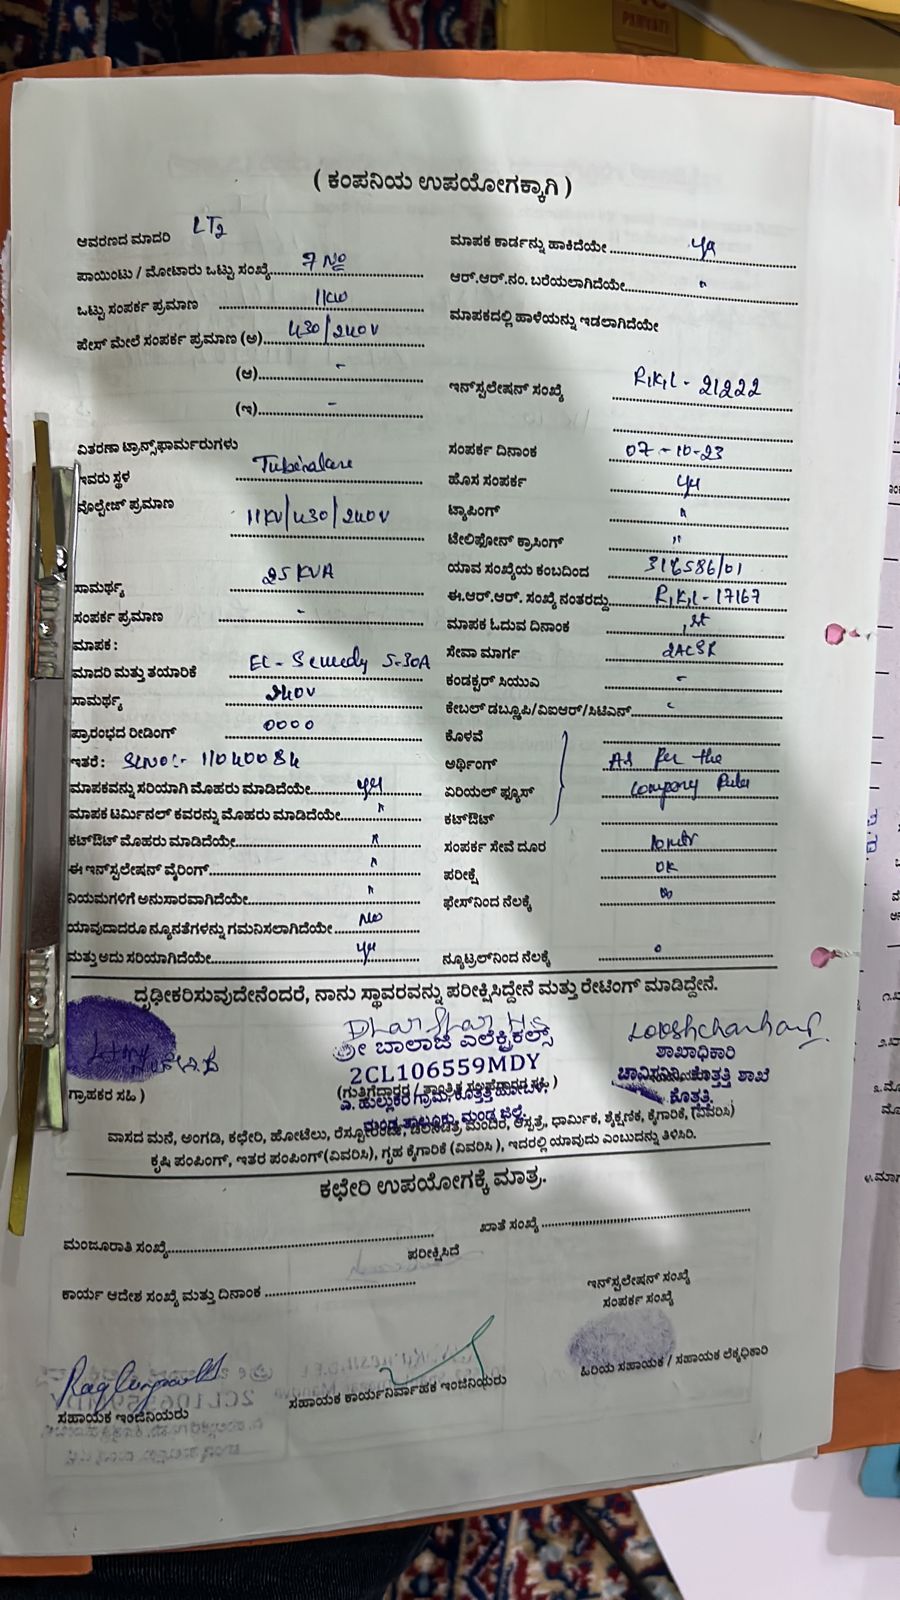 ( ಕಂಪನಿಯ ಉಪಯೋಗಕ್ಕಾಗಿ )
ಆವರಣದ ಮಾದರಿ LT2
ಪಾಯಿಂಟು / ಮೋಟಾರು ಒಟ್ಟು ಸಂಖ್ಯೆ 7 No
ಒಟ್ಟು ಸಂಪರ್ಕ ಪ್ರಮಾಣ 11KW
ಫೇಸ್ ಮೇಲೆ ಸಂಪರ್ಕ ಪ್ರಮಾಣ (ಅ) 430/240V
(ಆ) -
(ಇ) -
ವಿತರಣಾ ಟ್ರಾನ್ಸ್‌ಫಾರ್ಮರುಗಳು
ಇವರು ಸ್ಥಳ
ವೊಲ್ಟೇಜ್ ಪ್ರಮಾಣ 11KV/430/240V
ಸಾಮರ್ಥ್ಯ 25KVA
ಸಂಪರ್ಕ ಪ್ರಮಾಣ -
ಮಾಪಕ :
ಮಾದರಿ ಮತ್ತು ತಯಾರಿಕೆ 5-30A
ಸಾಮರ್ಥ್ಯ 240V
ಪ್ರಾರಂಭದ ರೀಡಿಂಗ್ 0000
ಇತರೆ : SLNO:- 11040084
ಮಾಪಕವನ್ನು ಸರಿಯಾಗಿ ಮೊಹರು ಮಾಡಿದೆಯೇ
ಮಾಪಕ ಟರ್ಮಿನಲ್ ಕವರನ್ನು ಮೊಹರು ಮಾಡಿದೆಯೇ
ಕಟ್‌ಔಟ್ ಮೊಹರು ಮಾಡಿದೆಯೇ
ಈ ಇನ್‌ಸ್ಟಲೇಷನ್ ವೈರಿಂಗ್
ನಿಯಮಗಳಿಗೆ ಅನುಸಾರವಾಗಿದೆಯೇ
ಯಾವುದಾದರೂ ನ್ಯೂನತೆಗಳನ್ನು ಗಮನಿಸಲಾಗಿದೆಯೇ No
ಮತ್ತು ಅದು ಸರಿಯಾಗಿದೆಯೇ
ಮಾಪಕ ಕಾರ್ಡನ್ನು ಹಾಕಿದೆಯೇ
ಆರ್.ಆರ್.ನಂ. ಬರೆಯಲಾಗಿದೆಯೇ "
ಮಾಪಕದಲ್ಲಿ ಹಾಳೆಯನ್ನು ಇಡಲಾಗಿದೆಯೇ
ಇನ್‌ಸ್ಟಲೇಷನ್ ಸಂಖ್ಯೆ R,K,L - 21222
ಸಂಪರ್ಕ ದಿನಾಂಕ 07-10-23
ಹೊಸ ಸಂಪರ್ಕ
ಟ್ಯಾಪಿಂಗ್
ಟೇಲಿಫೋನ್ ಕ್ರಾಸಿಂಗ್ "
ಯಾವ ಸಂಖ್ಯೆಯ ಕಂಬದಿಂದ
ಈ.ಆರ್.ಆರ್. ಸಂಖ್ಯೆ ನಂತರದ್ದು R,K,L-17167
ಮಾಪಕ ಓದುವ ದಿನಾಂಕ 1st
ಸೇವಾ ಮಾರ್ಗ 2ACSR
ಕಂಡಕ್ಟರ್ ಸಿಯುಎ -
ಕೇಬಲ್ ಡಬ್ಲೂಪಿ/ವಿಐಆರ್/ಸಿಟಿಎನ್
ಕೊಳವೆ
ಅರ್ಥಿಂಗ್ As per the
ಏರಿಯಲ್ ಫ್ಯೂಸ್ company Rules
ಕಟ್‌ಔಟ್
ಸಂಪರ್ಕ ಸೇವೆ ದೂರ 10mtr
ಪರೀಕ್ಷೆ OK
ಫೇಸ್‌ನಿಂದ ನೆಲಕ್ಕೆ
ನ್ಯೂಟ್ರಲ್‌ನಿಂದ ನೆಲಕ್ಕೆ 0
ದೃಢೀಕರಿಸುವುದೇನೆಂದರೆ, ನಾನು ಸ್ಥಾವರವನ್ನು ಪರೀಕ್ಷಿಸಿದ್ದೇನೆ ಮತ್ತು ರೇಟಿಂಗ್ ಮಾಡಿದ್ದೇನೆ.
ಶ್ರೀ ಬಾಲಾಜಿ ಎಲೆಕ್ಟ್ರಿಕಲ್ಸ್
2CL106559MDY
ಶಾಖಾಧಿಕಾರಿ
ಗ್ರಾಹಕರ ಸಹಿ )
ಕೊತ್ತತ್ತಿ ಶಾಖೆ
ಕೊತ್ತತ್ತಿ.
ವಾಸದ ಮನೆ, ಅಂಗಡಿ, ಕಛೇರಿ, ಹೋಟೆಲು, ಆಸ್ಪತ್ರೆ, ಧಾರ್ಮಿಕ, ಶೈಕ್ಷಣಿಕ, ಕೈಗಾರಿಕೆ, (ವಿವರಿಸಿ)
ಕೃಷಿ ಪಂಪಿಂಗ್, ಇತರ ಪಂಪಿಂಗ್(ವಿವರಿಸಿ), ಗೃಹ ಕೈಗಾರಿಕೆ (ವಿವರಿಸಿ ), ಇದರಲ್ಲಿ ಯಾವುದು ಎಂಬುದನ್ನು ತಿಳಿಸಿರಿ.
ಕಛೇರಿ ಉಪಯೋಗಕ್ಕೆ ಮಾತ್ರ.
ಮಂಜೂರಾತಿ ಸಂಖ್ಯೆ
ಖಾತೆ ಸಂಖ್ಯೆ
ಪರೀಕ್ಷಿಸಿದೆ
ಕಾರ್ಯ ಆದೇಶ ಸಂಖ್ಯೆ ಮತ್ತು ದಿನಾಂಕ
ಇನ್‌ಸ್ಟಲೇಷನ್ ಸಂಖ್ಯೆ
ಸಂಪರ್ಕ ಸಂಖ್ಯೆ
ಸಹಾಯಕ ಇಂಜಿನಿಯರು
ಸಹಾಯಕ ಕಾರ್ಯನಿರ್ವಾಹಕ ಇಂಜಿನಿಯರು
ಹಿರಿಯ ಸಹಾಯಕ / ಸಹಾಯಕ ಲೆಕ್ಕಧಿಕಾರಿ